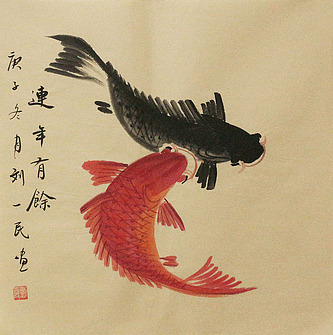 連年有餘
庚子冬月刘一民画